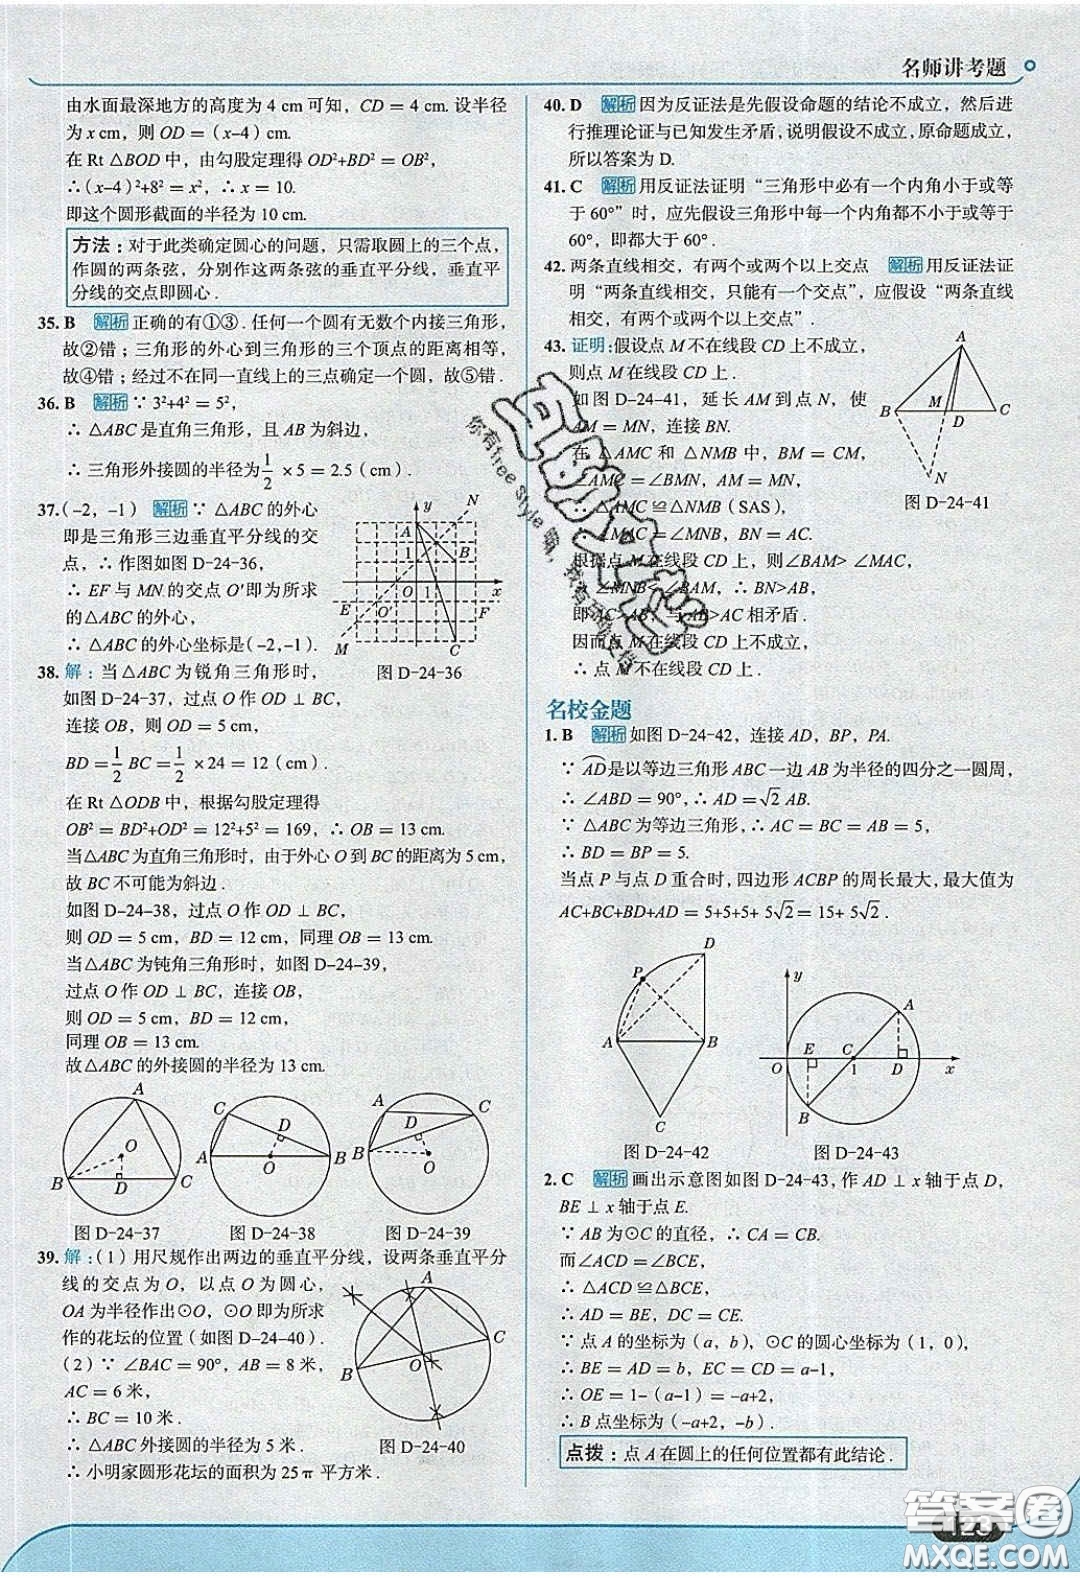 名师讲考题
由水面最深地方的高度为 4 cm 可知，CD = 4 cm. 设半径
为 x cm，则 OD =（x–4）cm.
在 Rt △BOD 中，由勾股定理得 OD²+BD² = OB²，
∴ (x–4)²+8² = x²，∴ x = 10.
即这个圆形截面的半径为 10 cm.
方法：对于此类确定圆心的问题，只需取圆上的三个点，
作圆的两条弦，分别作这两条弦的垂直平分线，垂直平
分线的交点即圆心.
35. B 解析 正确的有①③. 任何一个圆有无数个内接三角形，
故②错；三角形的外心到三角形的三个顶点的距离相等，
故④错；经过不在同一直线上的三点确定一个圆，故⑤错.
36. B 解析 ∵ 3²+4² = 5²，
∴ △ABC 是直角三角形，且 AB 为斜边，
∴ 三角形外接圆的半径为 1/2 ×5 = 2.5（cm）.
37.（–2，–1） 解析 ∵ △ABC 的外心
即是三角形三边垂直平分线的交
点，∴ 作图如图 D-24-36，
∴ EF 与 MN 的交点 O′即为所求
的△ABC 的外心，
∴ △ABC 的外心坐标是（–2，–1）.
y N A 1 B E O′ O 1 F x M C
图 D-24-36
38. 解：当△ABC 为锐角三角形时，
如图 D-24-37，过点 O 作 OD ⊥ BC，
连接 OB，则 OD = 5 cm，
BD = 1/2 BC = 1/2 ×24 = 12（cm）.
在 Rt △ODB 中，根据勾股定理得
OB² = BD²+OD² = 12²+5² = 169，∴ OB = 13 cm.
当△ABC 为直角三角形时，由于外心 O 到 BC 的距离为 5 cm，
故 BC 不可能为斜边.
如图 D-24-38，过点 O 作 OD ⊥ BC，
则 OD = 5 cm，BD = 12 cm，同理 OB = 13 cm.
当△ABC 为钝角三角形时，如图 D-24-39，
过点 O 作 OD ⊥ BC，连接 OB，
则 OD = 5 cm，BD = 12 cm，
同理 OB = 13 cm.
故△ABC 的外接圆的半径为 13 cm.
A O B D C
C D A O B
A C D B O
图 D-24-37 图 D-24-38 图 D-24-39
39. 解：（1）用尺规作出两边的垂直平分线，设两条垂直平分
线的交点为 O，以点 O 为圆心，
OA 为半径作出⊙O，⊙O 即为所求
作的花坛的位置（如图 D-24-40）.
（2）∵ ∠BAC = 90°，AB = 8 米，
AC = 6 米，
∴ BC = 10 米.
∴ △ABC 外接圆的半径为 5 米.
∴ 小明家圆形花坛的面积为 25π 平方米.
A C O B
图 D-24-40
40. D 解析 因为反证法是先假设命题的结论不成立，然后进
行推理论证与已知发生矛盾，说明假设不成立，原命题成立，
所以答案为 D.
41. C 解析 用反证法证明“三角形中必有一个内角小于或等
于 60°”时，应先假设三角形中每一个内角都不小于或等于
60°，即都大于 60°.
42. 两条直线相交，有两个或两个以上交点 解析 用反证法证
明“两条直线相交，只能有一个交点”，应假设“两条直线
相交，有两个或两个以上交点”.
43. 证明：假设点 M 不在线段 CD 上不成立，
则点 M 在线段 CD 上.
如图 D-24-41，延长 AM 到点 N，使
AM = MN，连接 BN.
在 △AMC 和 △NMB 中，BM = CM，
∠AMC = ∠BMN，AM = MN，
∴ △AMC ≌ △NMB（SAS），
∴ ∠MAC = ∠MNB，BN = AC.
根据点 M 在线段 CD 上，则 ∠BAM> ∠MAC，
∴ ∠MNB< ∠BAM，∴ BN>AB，
即 AC>AB，与 AB>AC 相矛盾.
因而点 M 在线段 CD 上不成立，
∴ 点 M 不在线段 CD 上.
A B M D C N
图 D-24-41
名校金题
1. B 解析 如图 D-24-42，连接 AD，BP，PA.
∵ AD 是以等边三角形 ABC 一边 AB 为半径的四分之一圆周，
∴ ∠ABD = 90°，∴ AD = √2 AB.
∵ △ABC 为等边三角形，∴ AC = BC = AB = 5，
∴ BD = BP = 5.
当点 P 与点 D 重合时，四边形 ACBP 的周长最大，最大值为
AC+BC+BD+AD = 5+5+5+ 5√2 = 15+ 5√2 .
D P A B C
y A E C D O 1 x B
图 D-24-42 图 D-24-43
2. C 解析 画出示意图如图 D-24-43，作 AD ⊥ x 轴于点 D，
BE ⊥ x 轴于点 E.
∵ AB 为⊙C 的直径，∴ CA = CB.
而∠ACD = ∠BCE，
∴ △ACD ≌ △BCE，
∴ AD = BE，DC = CE.
∵ 点 A 的坐标为（a，b），⊙C 的圆心坐标为（1，0），
∴ BE = AD = b，EC = CD = a–1，
∴ OE = 1–（a–1）= –a+2，
∴ B 点坐标为（–a+2，–b）.
点拨：点 A 在圆上的任何位置都有此结论.
你有free style 嘛，我有
答案圈
MXQE.COM
123